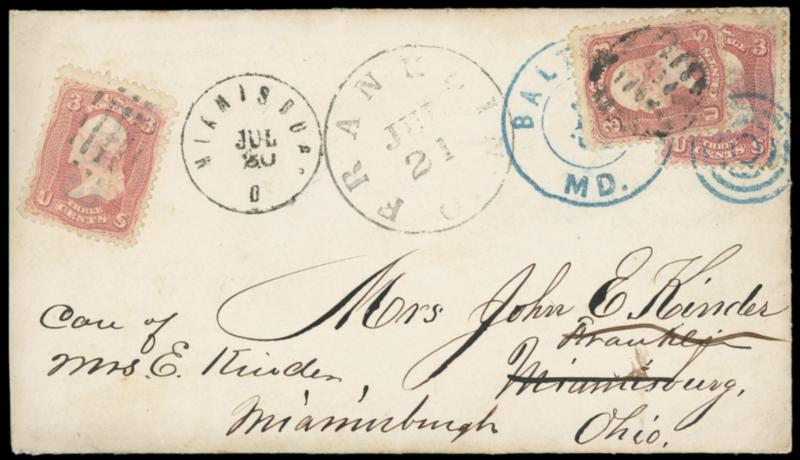 3 3
U THREE CENTS S
MIAMISBURG
JUL
20
O
FRANKLIN O.
JUL
21
BALT
MD.
3
U THREE CENTS S
3
U CENTS S
Mrs John E. Kinder
Franklin
Miamisburg,
Ohio.
Care of
Mrs. E. Kinder,
Miamisburgh